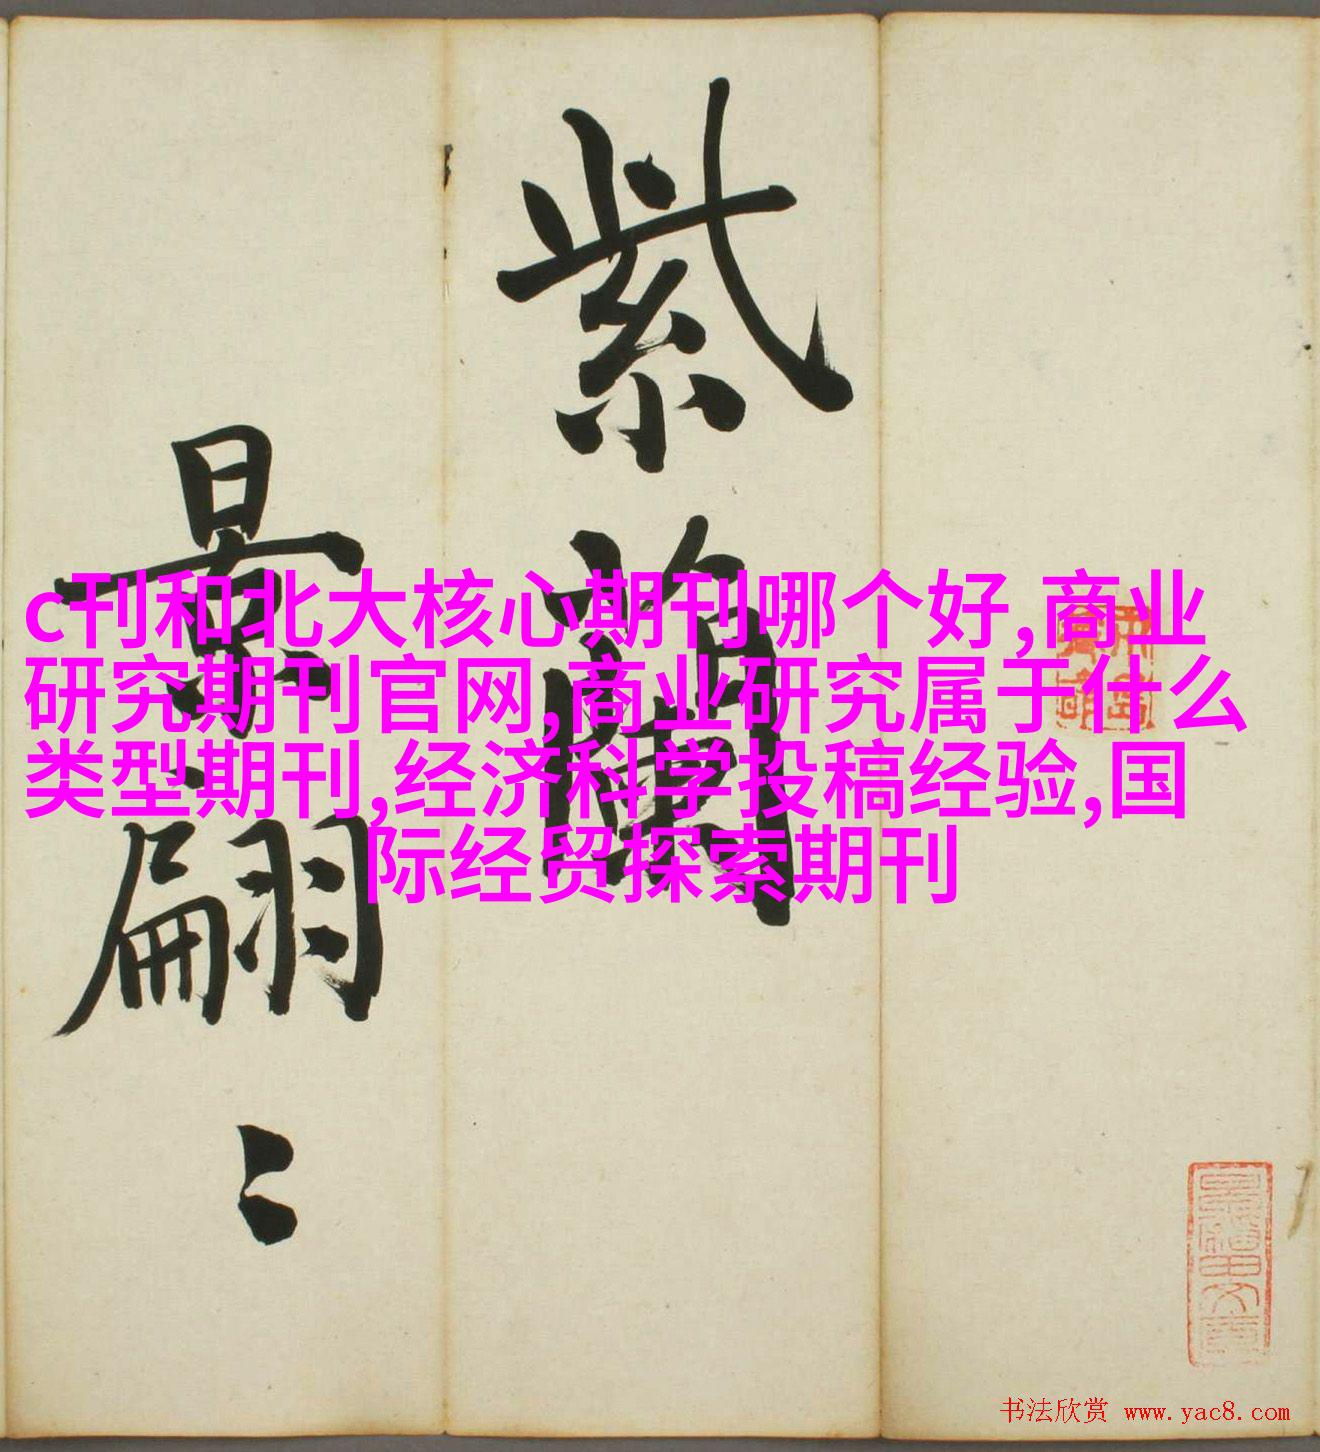 c刊和北大核心期刊哪个好,商业
研究期刊官网,商业研究属于什么
类型期刊,经济科学投稿经验,国
际经贸探索期刊
紫蘭
景翩〻
书法欣赏 www.yac8.com